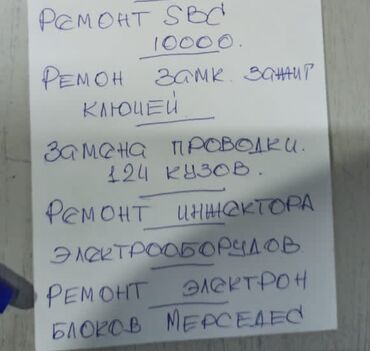 РЕМОНТ SBC
10000.
РЕМОН ЗАМК. ЗАЖИГ
КЛЮЧЕЙ.
ЗАМЕНА ПРОВОДКИ.
124 КУЗОВ.
РЕМОНТ ИНЖЕКТОРА
ЭЛЕКТРООБОРУДОВ
РЕМОНТ ЭЛЕКТРОН
БЛОКОВ МЕРСЕДЕС